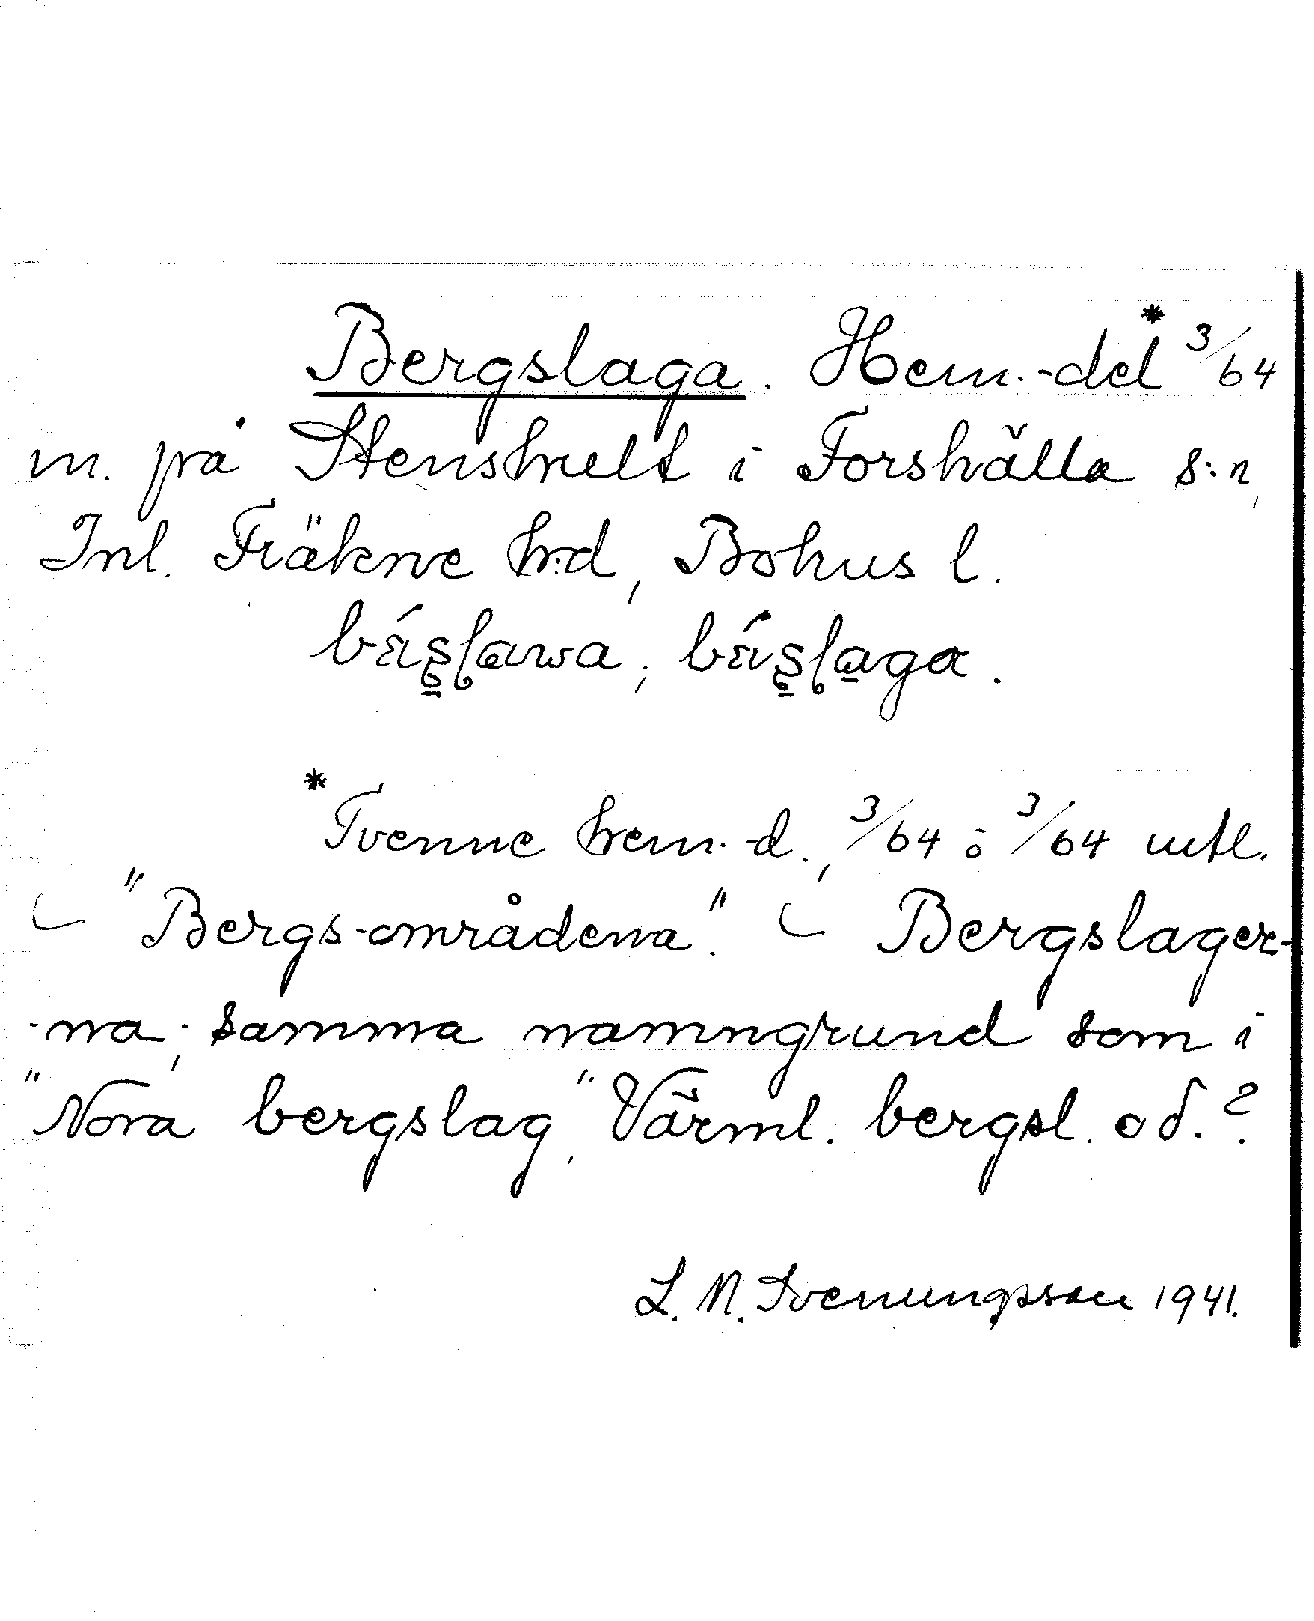 Bergslaga. Hem.-del* 3/64
m. på Stenshult i Forshälla s:n,
Inl. Fräkne hd, Bohus l.
*Tvenne hem.-d., 3/64 o 3/64 mtl.
"Bergs-områdena". Bergslager-
-na, samma namngrund som i
"Nora bergslag", Värml. bergsl. o d.?
L. N. Svenungsson 1941.